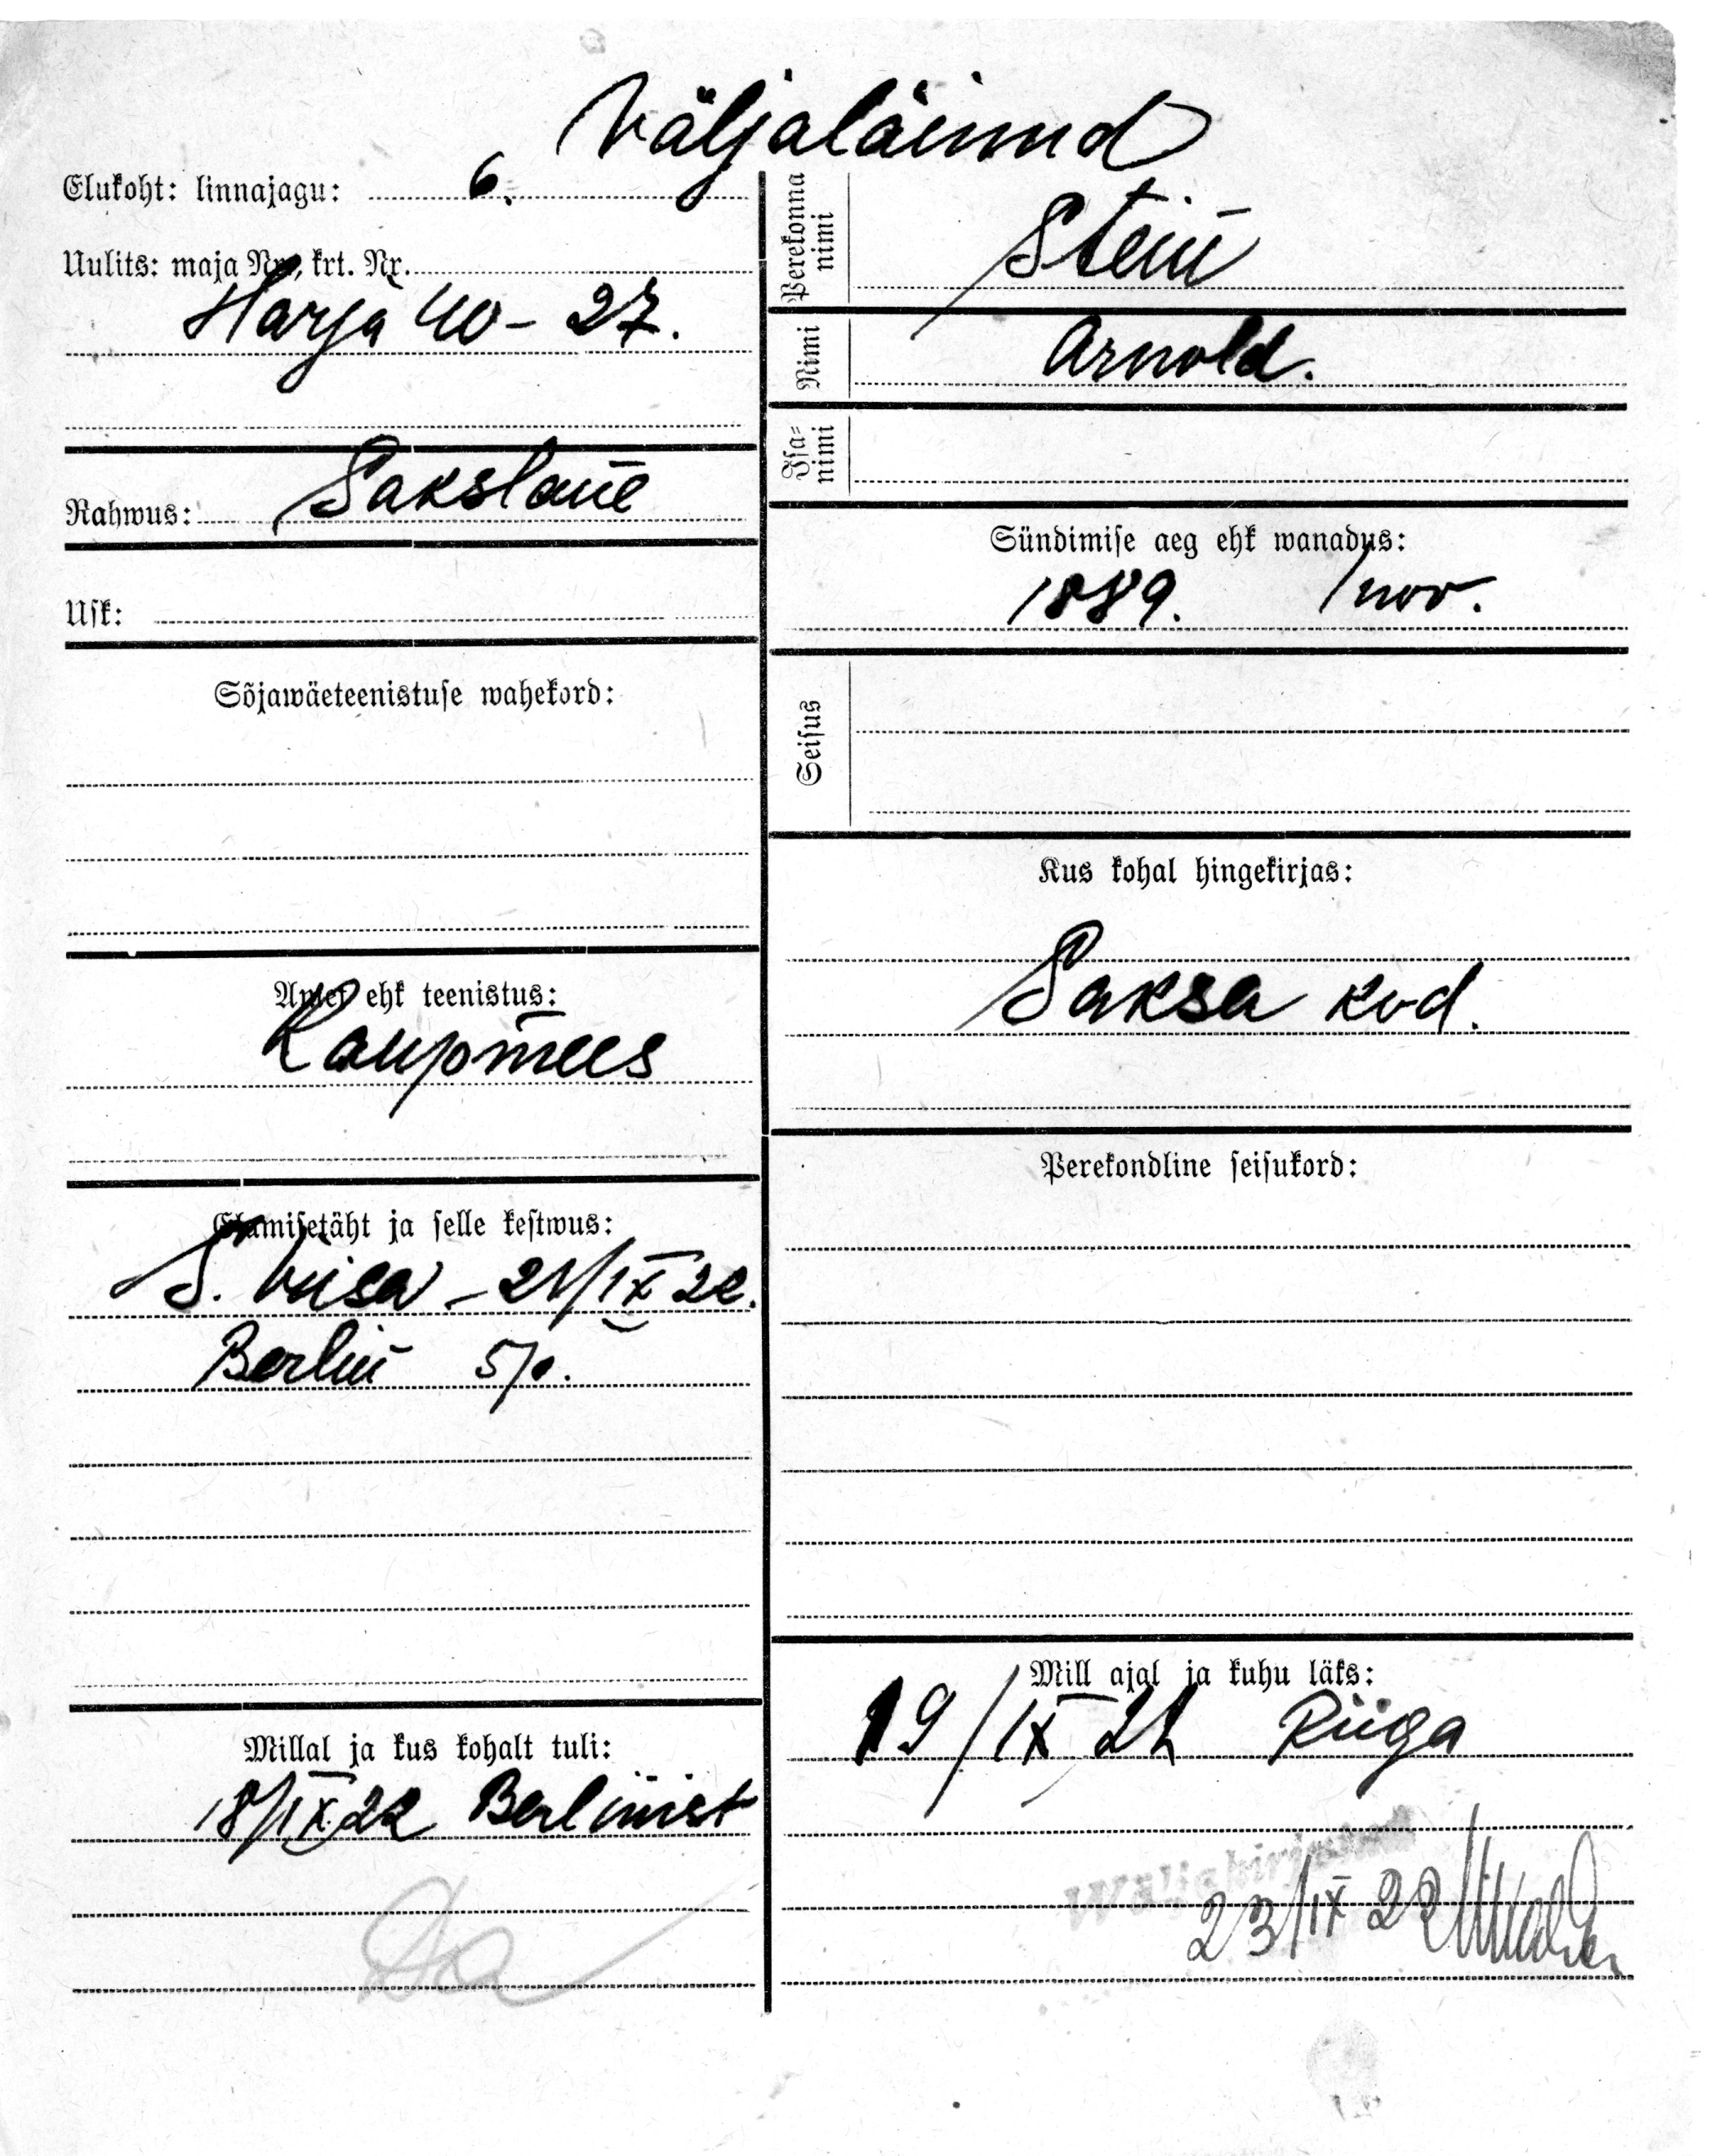 Väljaläinud
Elukoht: linnajagu: 6.
Uulits: maja Nr., krt. Nr.
Harja 40 - 27.
Rahwus: Sakslane
Usk:
Sõjawäeteenistuse wahekord:
Amet ehk teenistus:
Kaupmees
Elamisetäht ja selle kestwus:
S. Visa - 21/IX 22.
Berlin 5p.
Millal ja kus kohalt tuli:
18/IX 22 Berlinist
Perekonna
nimi
Stein
Nimi
Arnold.
Isa-
nimi
Sündimise aeg ehk wanadus:
1889. 1 nov.
Seisus
Kus kohal hingekirjas:
Saksa kod.
Perekondline seisukord:
Mill ajal ja kuhu läks:
19/IX 22 Riiga
23/IX 22